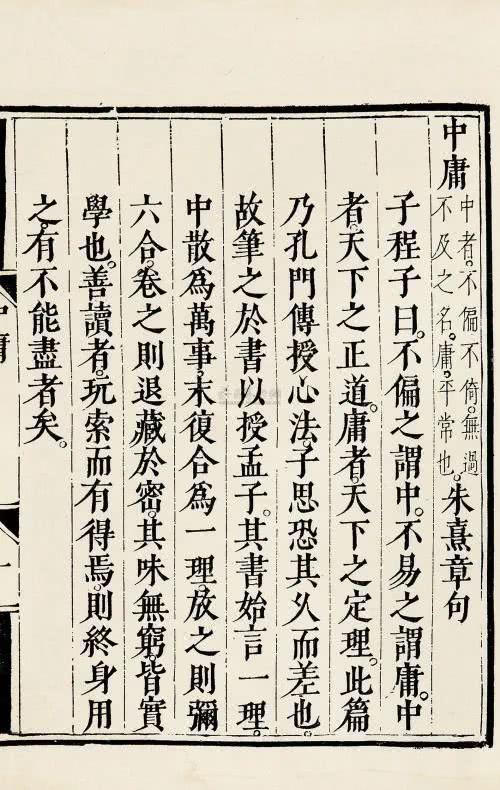 中庸中者。不偏不倚。無過不及之名。庸。平常也。朱熹章句
子程子曰。不偏之謂中。不易之謂庸。中
者。天下之正道。庸者。天下之定理。此篇
乃孔門傳授心法。子思恐其久而差也。
故筆之於書以授孟子。其書始言一理。
中散爲萬事。末復合爲一理。放之則彌
六合。卷之則退藏於密。其味無窮。皆實
學也。善讀者。玩索而有得焉。則終身用
之。有不能盡者矣。
中庸
一